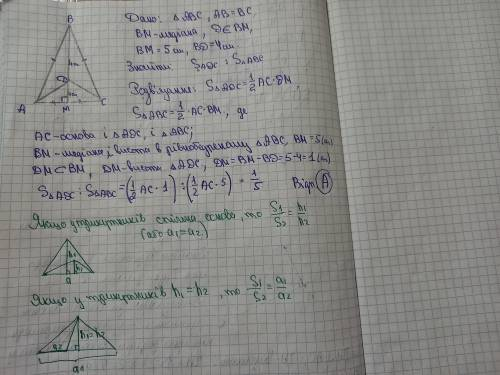 B
Дано: △ABC, AB=BC,
BM-медіана, D∈BM,
BM=5см, BD=4см.
Знайти: S△ADC : S△ABC
Розв'язання: S△ADC = 1/2 AC·DM,
S△ABC = 1/2 AC·BM, де
4см
D
1см
A
M
C
AC-основа і △ADC, і △ABC;
BM-медіана і висота в рівнобедреному △ABC, BM=5(см)
DM⊂BM, DM-висота △ADC, DM=BM-BD=5-4=1(см)
S△ADC : S△ABC = (1/2 AC·1) : (1/2 AC·5) = 1/5
Відп. A
Якщо у трикутників спільна основа, то S1/S2 = h1/h2
(або a1=a2)
h1
h2
a
Якщо у трикутників h1=h2, то S1/S2 = a1/a2
h1=h2
a2
a1